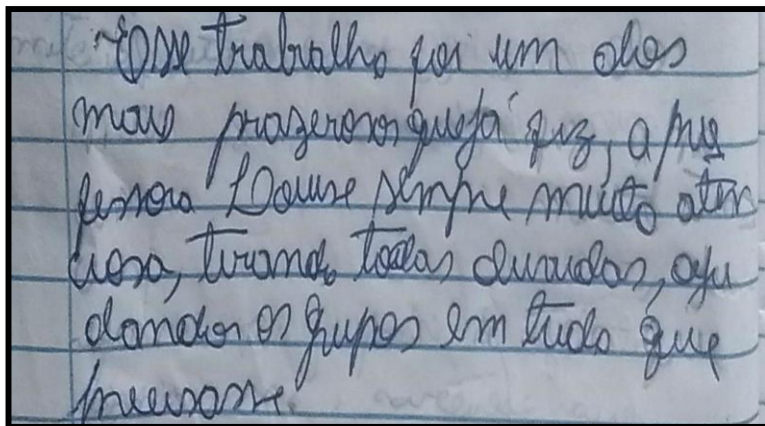 Esse trabalho foi um dos
mais prazerosos que já fiz, a pro
fessora Louise sempre muito aten
ciosa, tirando todas duvidas, aju
dando os grupos em tudo que
precisasse.